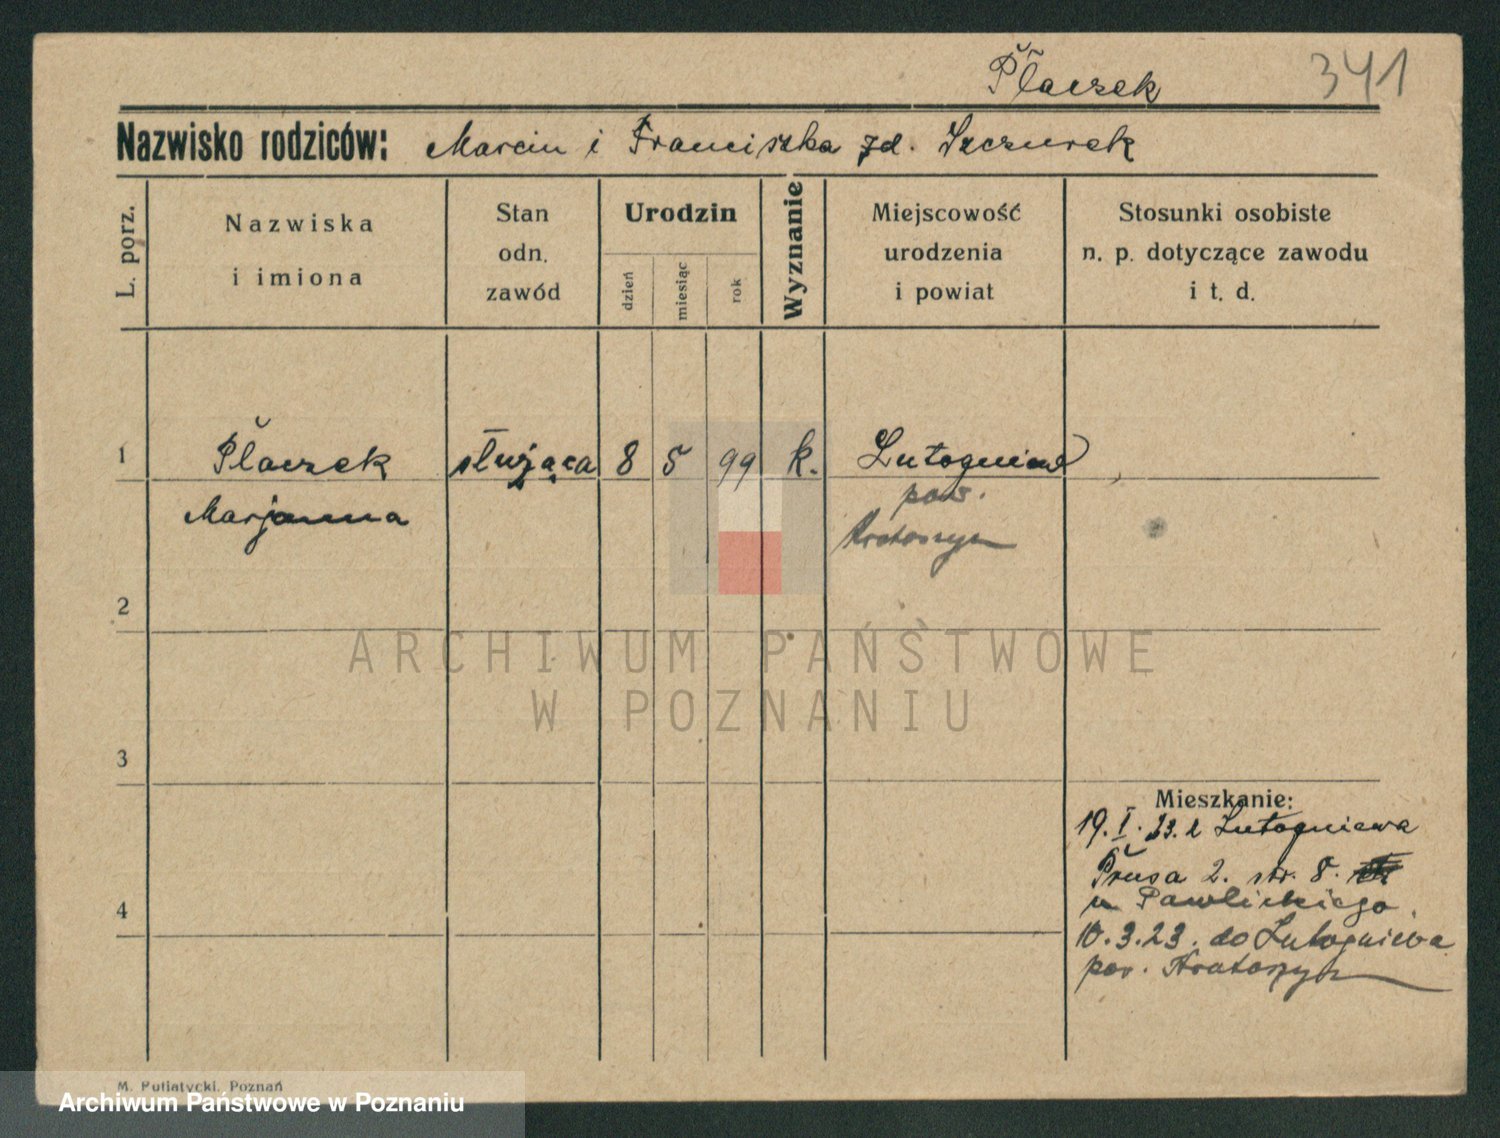 Płaczek 341
Nazwisko rodziców: Marcin i Franciszka zd. Szczurek
L. porz.
Nazwiska
i imiona
Stan
odn.
zawód
Urodzin
dzień
miesiąc
rok
Wyznanie
Miejscowość
urodzenia
i powiat
Stosunki osobiste
n. p. dotyczące zawodu
i t. d.
1 Płaczek służąca 8 5 99 k. Lutogniew
Marjanna pow.
Krotoszyn
2
ARCHIWUM PAŃSTWOWE
W POZNANIU
3
Mieszkanie:
19. I. 23. z Lutogniewa
Prusa 2. str. 8.
4
u Pawlickiego
10.3.23. do Lutogniewa
pow. Krotoszyn
M. Putiatycki, Poznań
Archiwum Państwowe w Poznaniu